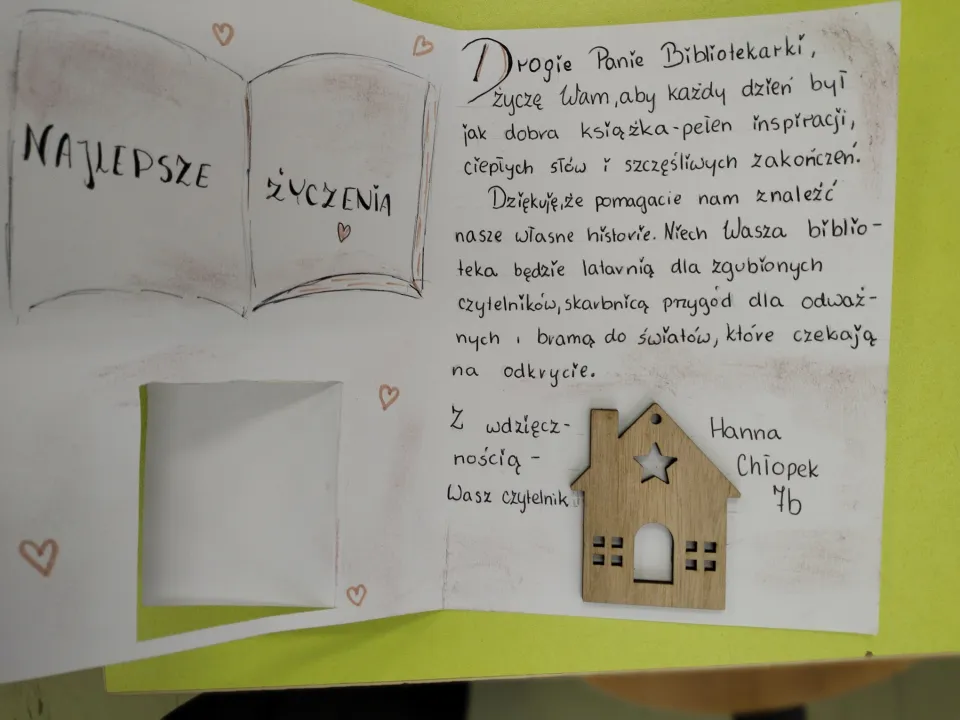 NAJLEPSZE
ŻYCZENIA
Drogie Panie Bibliotekarki,
życzę Wam, aby każdy dzień był
jak dobra książka-pełen inspiracji,
ciepłych słów i szczęśliwych zakończeń.
Dziękuję, że pomagacie nam znaleźć
nasze własne historie. Niech Wasza biblio-
teka będzie latarnią dla zgubionych
czytelników, skarbnicą przygód dla odważ-
nych i bramą do światów, które czekają
na odkrycie.
Z wdzięcz-
nością -
Wasz czytelnik
Hanna
Chłopek
7b